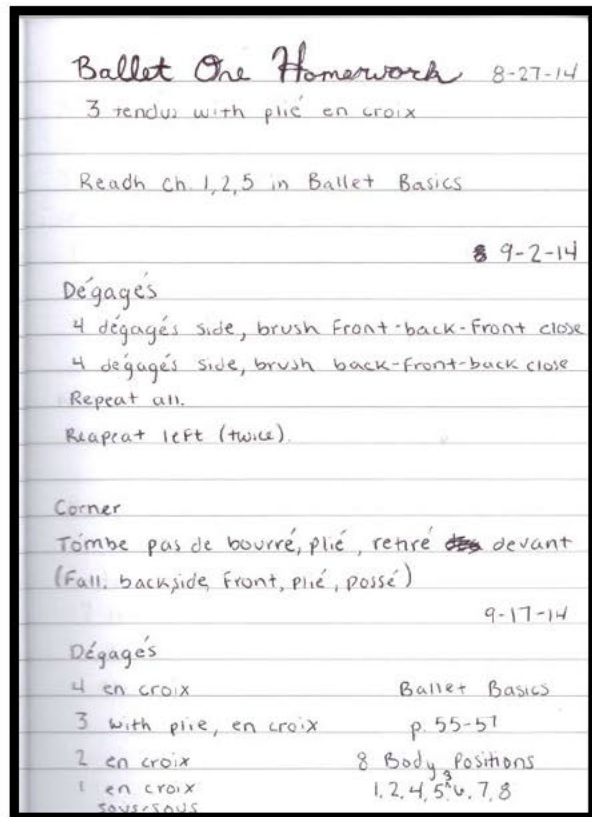 Ballet One Homework 8-27-14
3 tendus with plié en croix
Readh ch. 1,2,5 in Ballet Basics
9-2-14
Dégagés
4 dégagés side, brush front-back-front close
4 dégagés side, brush back-front-back close
Repeat all.
Reapeat left (twice).
Corner
Tombe pas de bourré, plié, retiré devant
(Fall, back,side, front, plié, possé)
9-17-14
Dégagés
4 en croix Ballet Basics
3 with plie, en croix p. 55-57
2 en croix 8 Body Positions
1 en croix 1,2,4,5,3,6,7,8
sous-sous